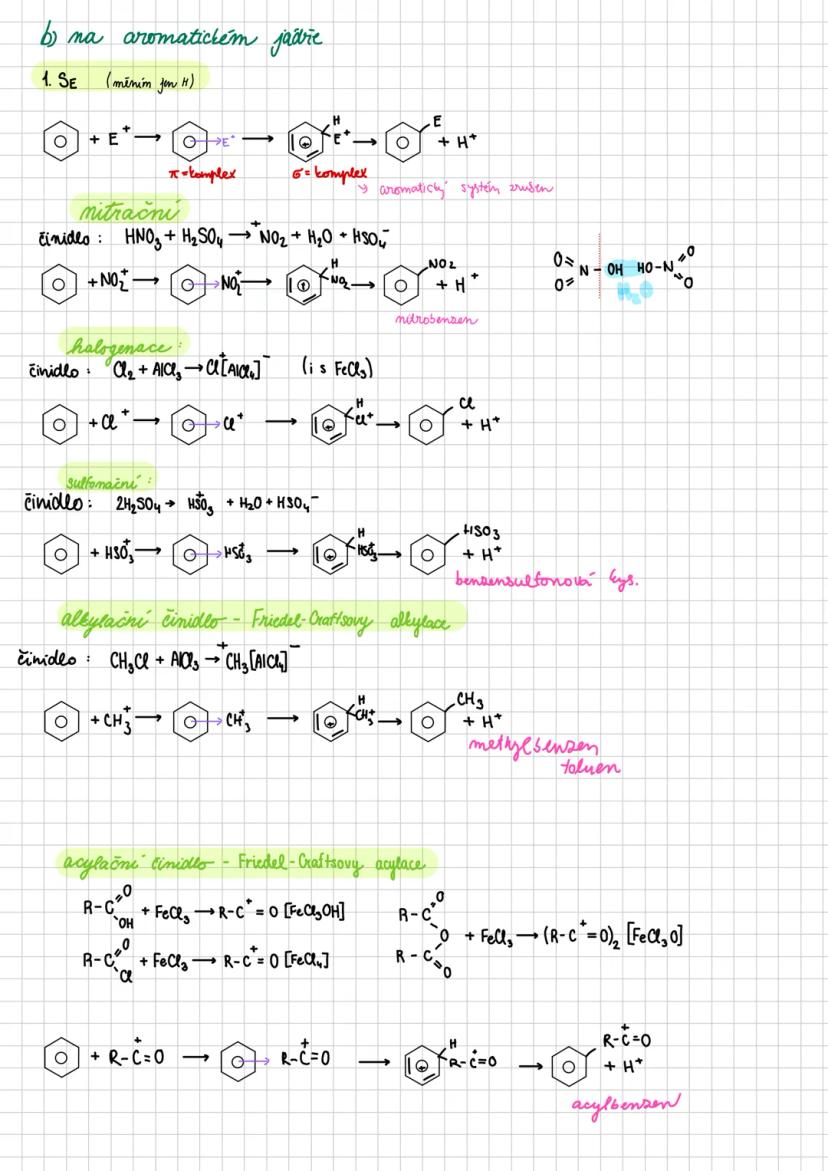 b) na aromatickém jádře
1. SE (měním jen H)
+ E⁺ → →E⁺ → H E⁺ → E + H⁺
π=komplex σ=komplex
↳ aromatický systém zrušen
nitrační
činidlo : HNO₃ + H₂SO₄ → ⁺NO₂ + H₂O + HSO₄⁻
+ NO₂⁺ → →NO₂⁺ → H NO₂ → NO₂ + H⁺
nitrobenzen
O=N-OH HO-N=O
O= =O
H₂O
halogenace :
činidlo : Cl₂ + AlCl₃ → Cl⁺[AlCl₄]⁻ (i s FeCl₃)
+ Cl⁺ → →Cl⁺ → H Cl⁺ → Cl + H⁺
sulfonační :
činidlo : 2H₂SO₄ → HSO₃⁺ + H₂O + HSO₄⁻
+ HSO₃⁺ → →HSO₃⁺ → H HSO₃⁺ → HSO₃ + H⁺
benzensulfonová kys.
alkylační činidlo - Friedel-Craftsovy alkylace
činidlo : CH₃Cl + AlCl₃ → ⁺CH₃[AlCl₄]⁻
+ CH₃⁺ → →CH₃⁺ → H CH₃⁺ → CH₃ + H⁺
methylbenzen
toluen
acylační činidlo - Friedel-Craftsovy acylace
R-C=O OH + FeCl₃ → R-C⁺=O [FeCl₃OH]
R-C=O Cl + FeCl₃ → R-C⁺=O [FeCl₄]
R-C=O O R-C=O + FeCl₃ → (R-C⁺=O)₂ [FeCl₃O]
+ R-C⁺=O → → R-C⁺=O → H R-C⁺=O → R-C⁺=O + H⁺
acylbenzen